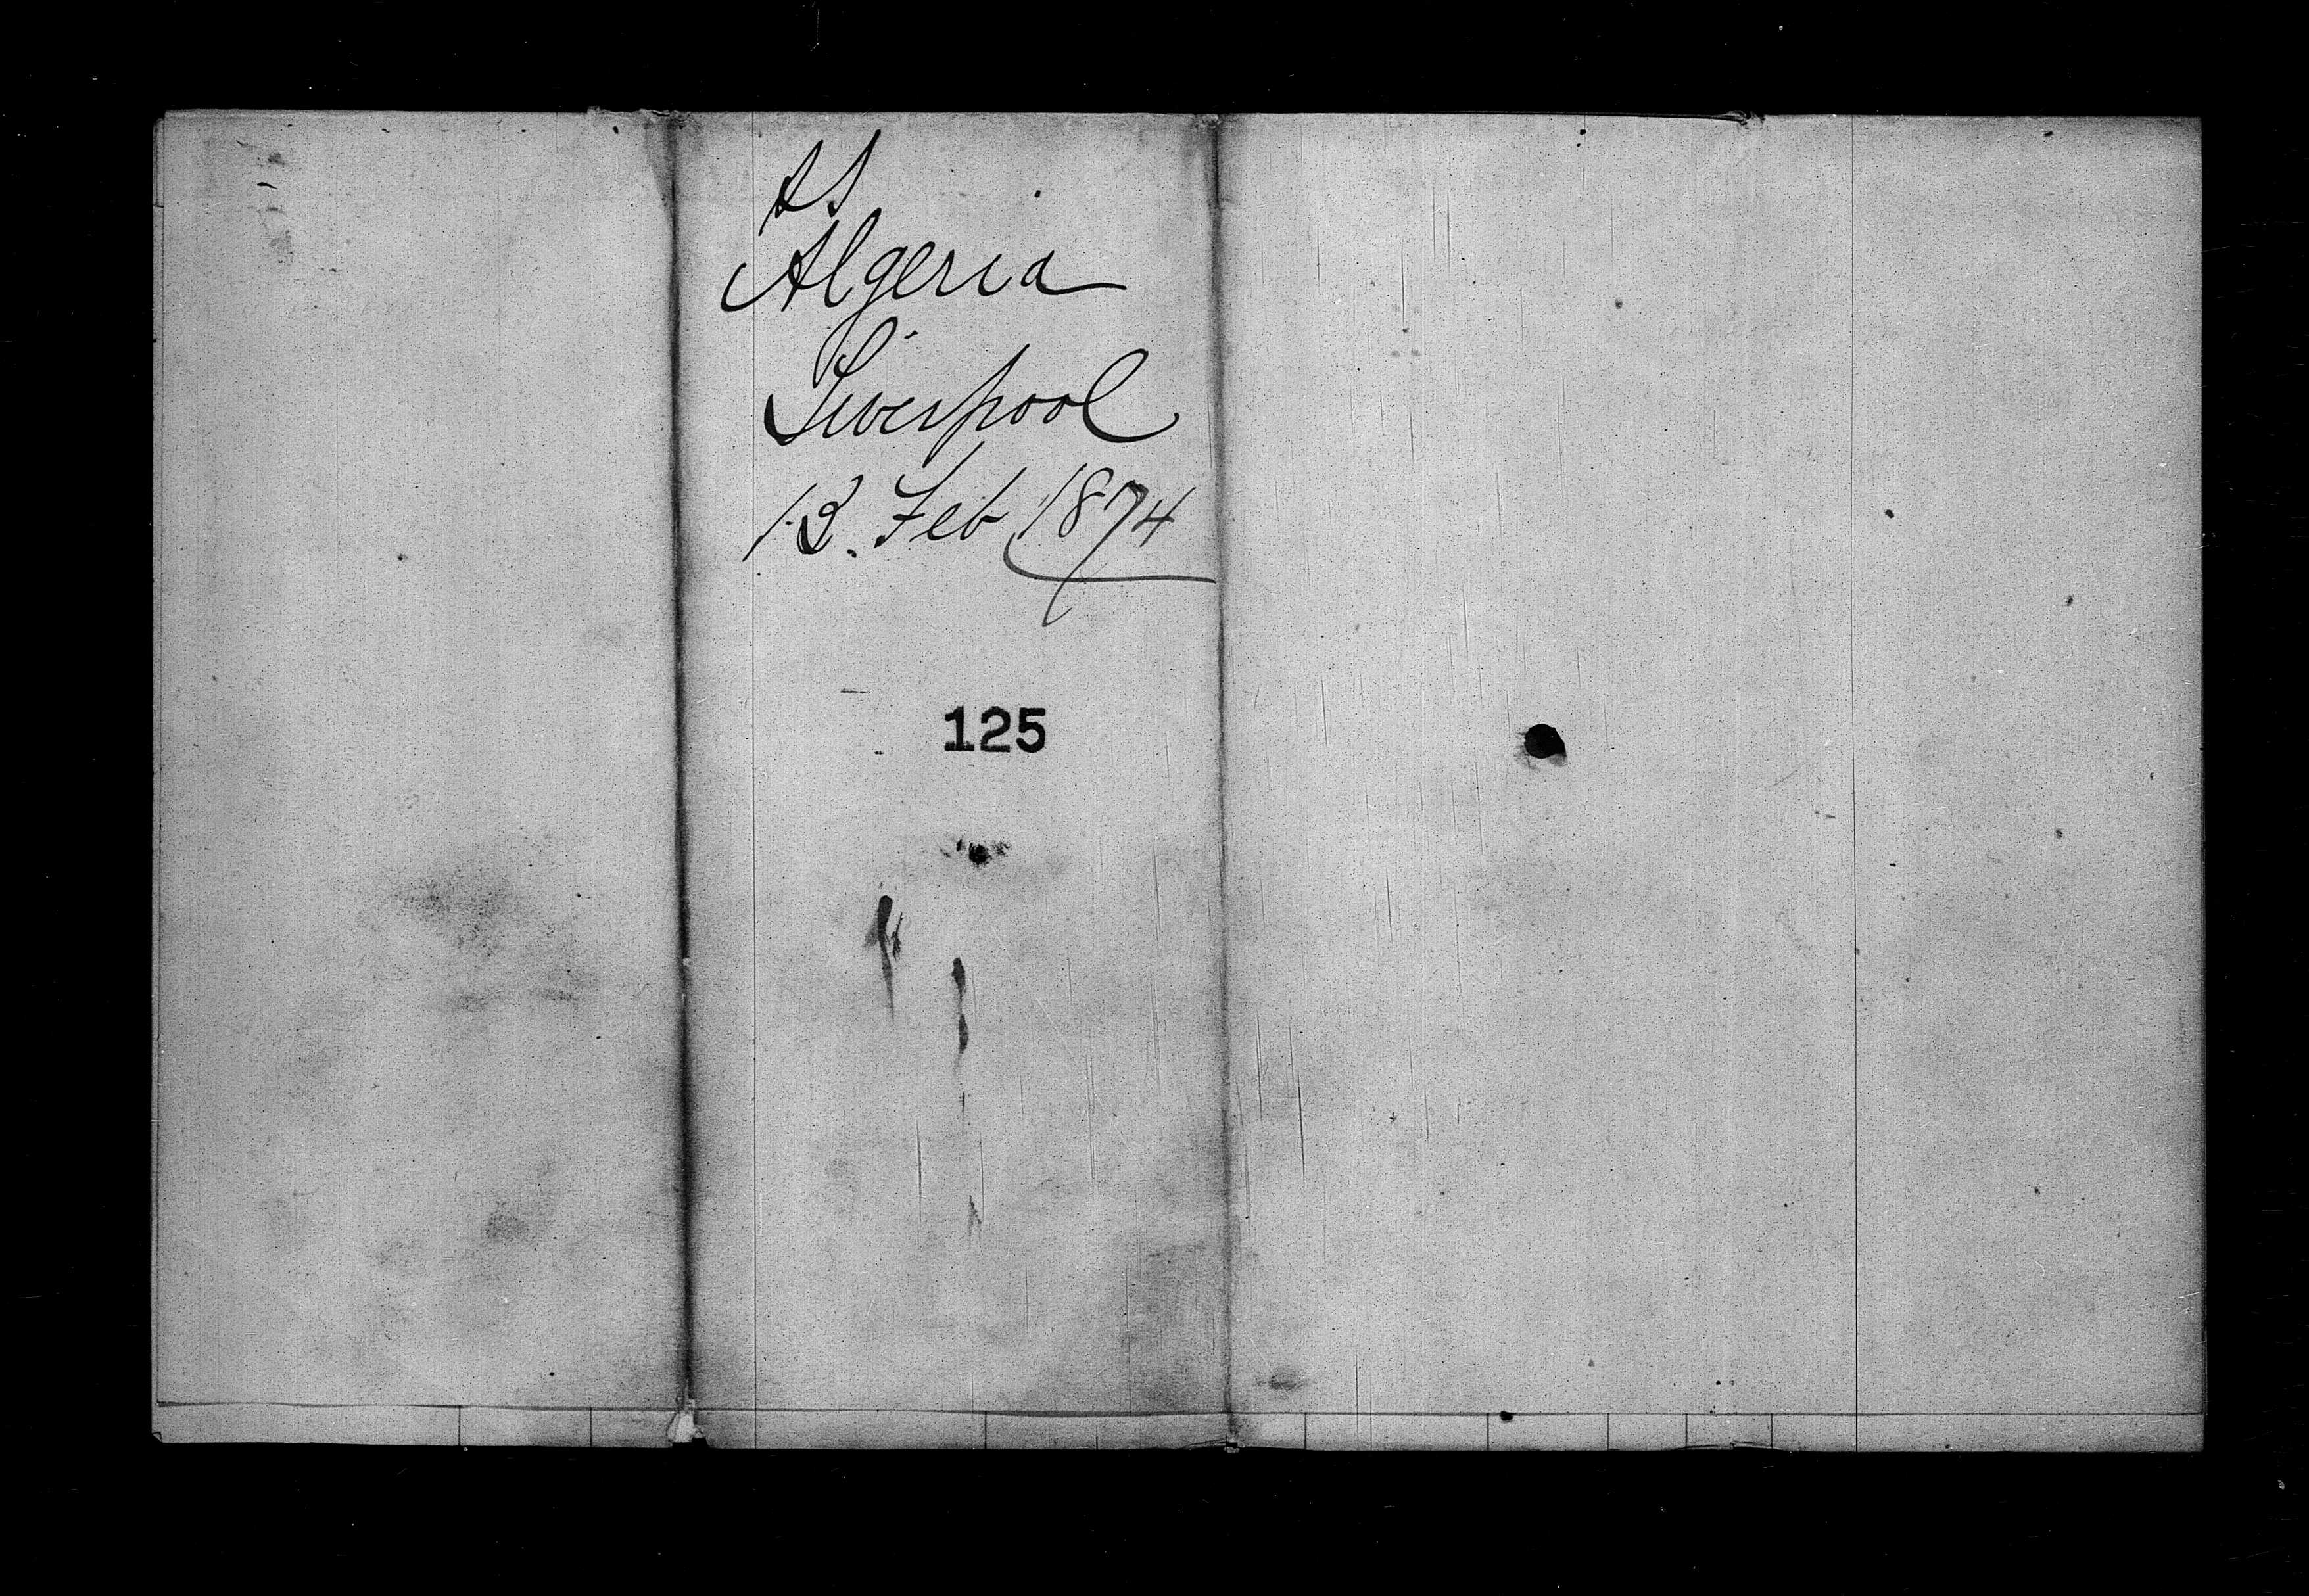 SS
Algeria
Liverpool
13. Feb 1874
125